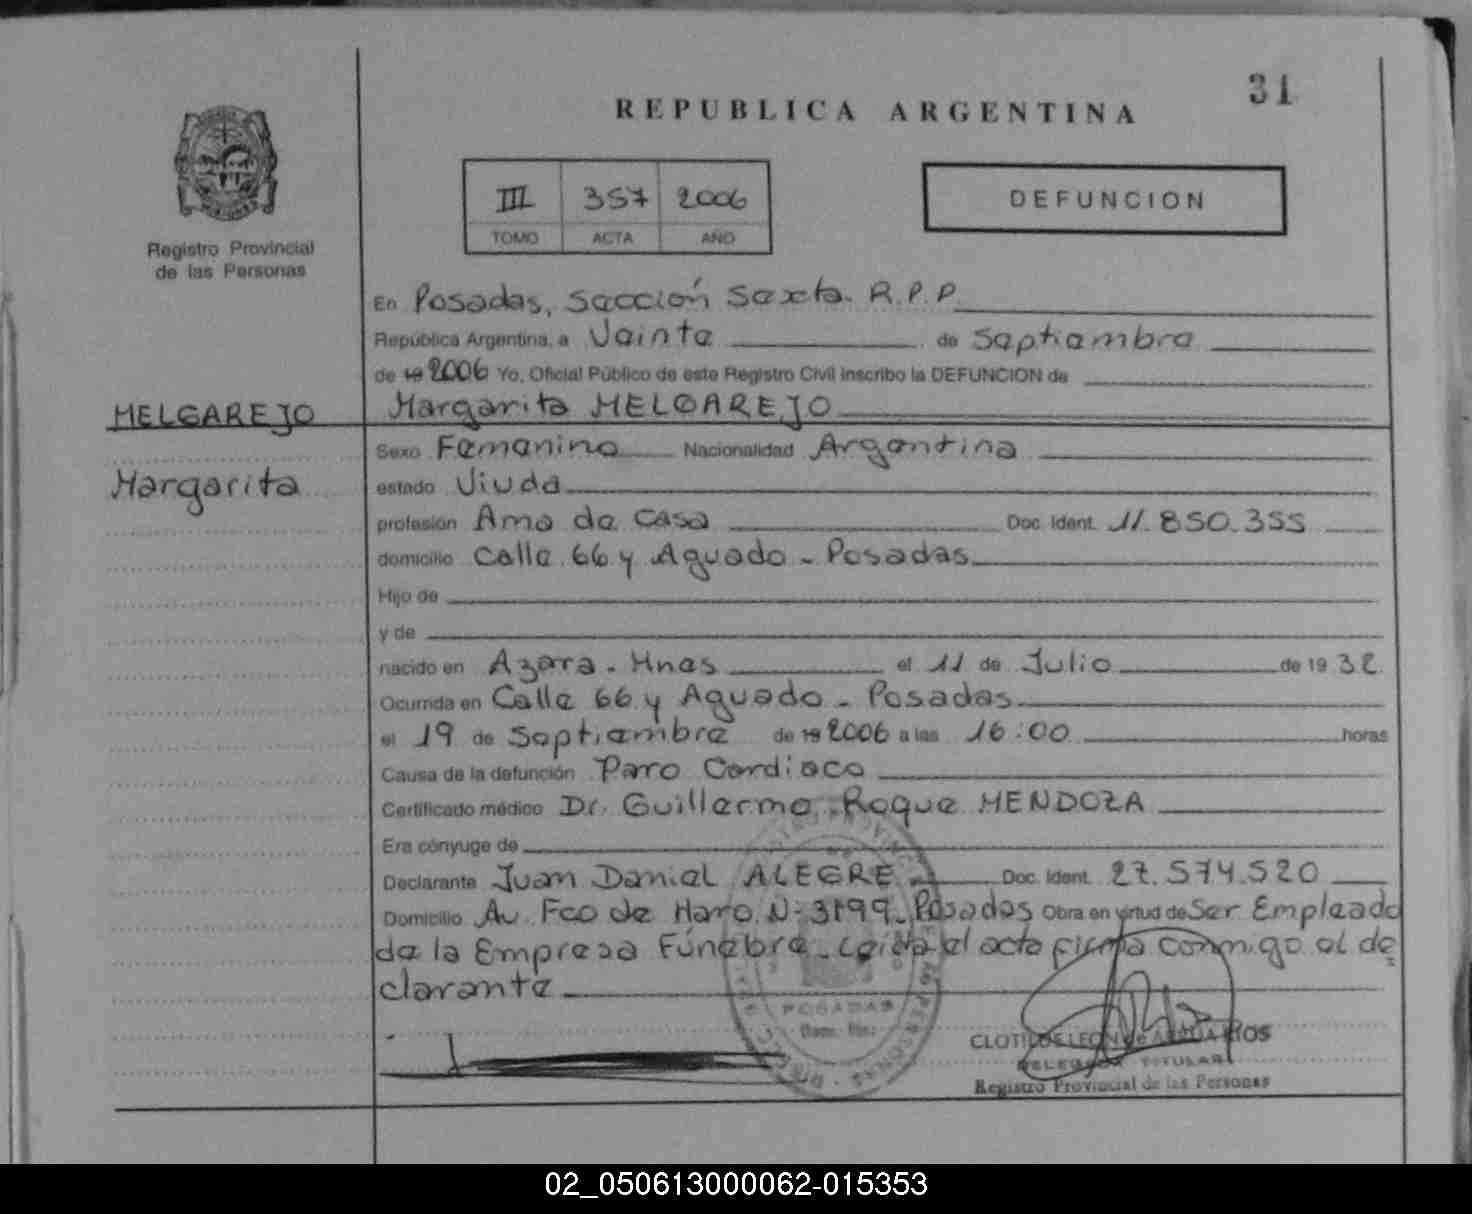 31
REPUBLICA ARGENTINA
III 357 2006
TOMO ACTA AÑO
DEFUNCION
Registro Provincial
de las Personas
En Posadas, Sección Sexta. R.P.P.
República Argentina, a Veinte de Septiembre
de 19 2006 Yo, Oficial Público de este Registro Civil inscribo la DEFUNCION de
MELGAREJO
Margarita
Margarita MELGAREJO
Sexo Femenino Nacionalidad Argentina
estado Viuda
profesión Ama de Casa Doc. Ident. 11.850.355
domicilio Calle 66 y Aguado - Posadas
Hijo de
y de
nacido en Azara - Mnes el 11 de Julio de 1932.
Ocurrida en Calle 66 y Aguado - Posadas
el 19 de Septiembre de 19 2006 a las 16:00 horas
Causa de la defunción Paro Cardiaco
Certificado médico Dr. Guillermo Roque MENDOZA
Era cónyuge de
Declarante Juan Daniel ALEGRE Doc. Ident. 27.574.520
Domicilio Av. Fco de Haro N: 3199 - Posadas Obra en virtud de Ser Empleado
de la Empresa Fúnebre - Leída el acta firma conmigo el de
clarante
POSADAS
CLOTILDE LEON de
DELEGADA TITULAR
Registro Provincial de las Personas
02_050613000062-015353